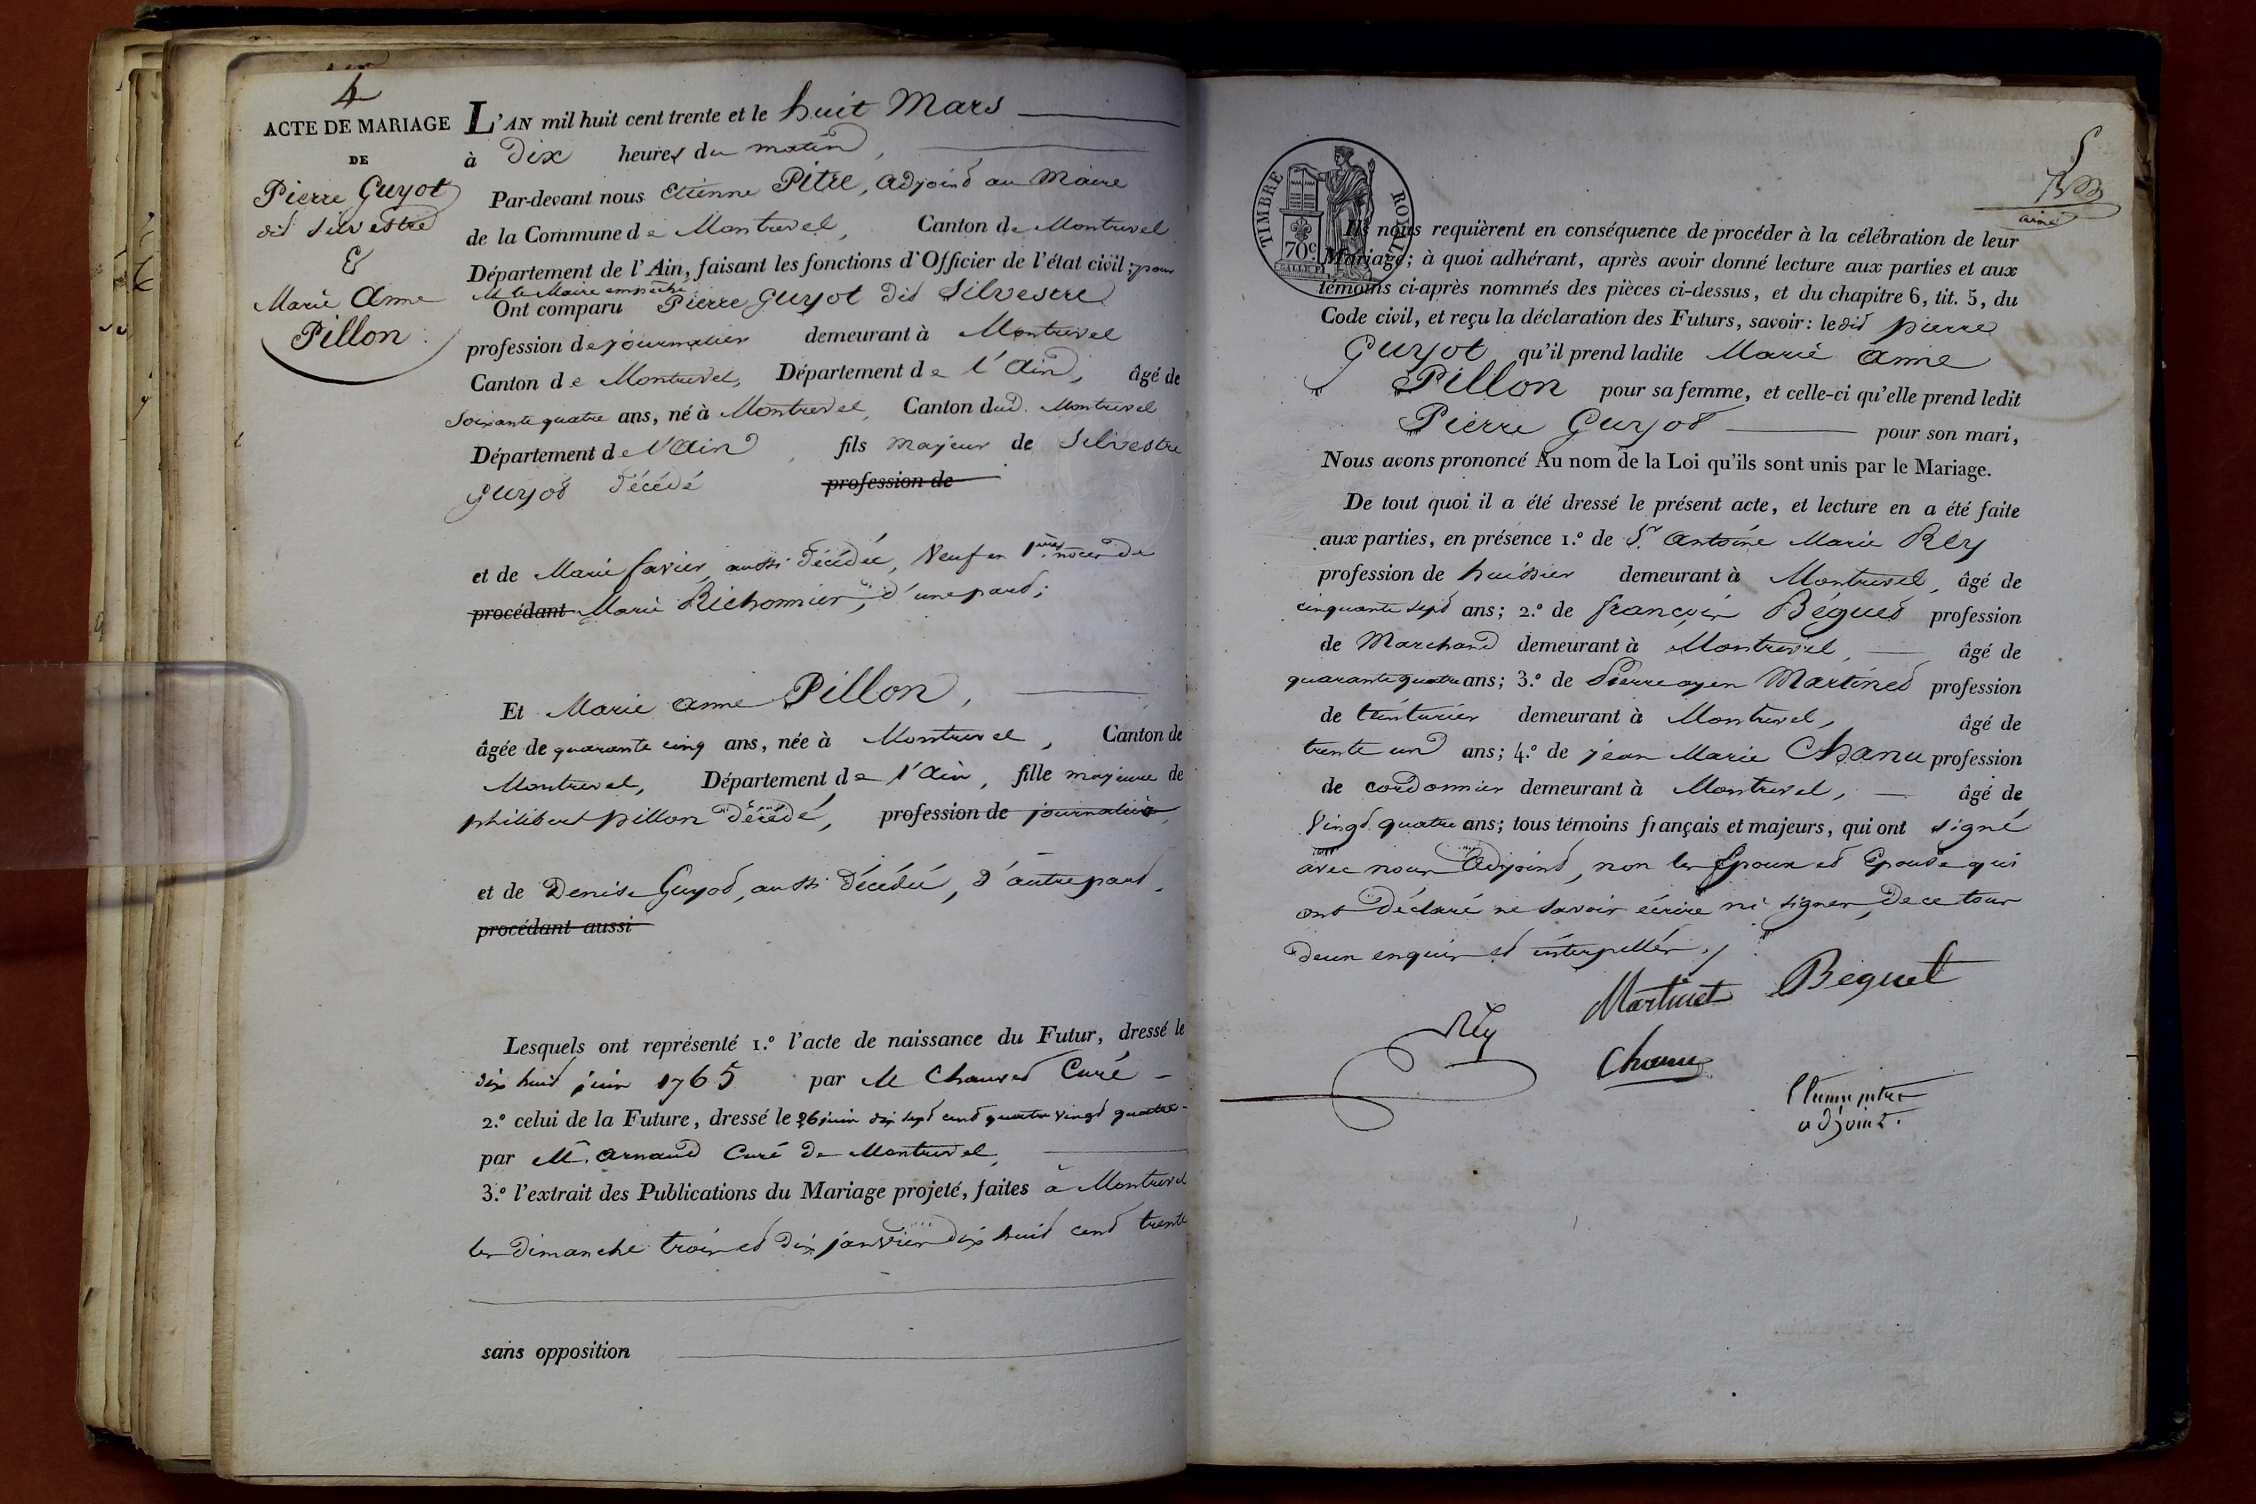 4
ACTE DE MARIAGE
DE
Pierre Guyot
dit Silvestre
&
Marie Anne
Pillon
L'AN mil huit cent trente et le huit Mars
à Dix heures du matin,
Par-devant nous Etienne Pitre, adjoint au Maire
de la Commune de Montrevel, Canton de Montrevel
Département de l'Ain, faisant les fonctions d'Officier de l'état civil; pour
M le Maire empêché
Ont comparu Pierre Guyot dit Silvestre
profession de journalier demeurant à Montrevel
Canton de Montrevel, Département de l'Ain, âgé de
Soixante quatre ans, né à Montrevel, Canton dud. Montrevel
Département de l'Ain, fils majeur de Silvestre
Guyot décédé profession de
et de Marie favier, aussi décédée, Veuf en 1ères noces de
procédant Marie Richonnier, d'une part;
Et Marie anne Pillon,
âgée de quarante cinq ans, née à Montrevel, Canton de
Montrevel, Département de l'Ain, fille majeure de
philibert pillon décédé, profession de journalier
et de Denise Guyot, aussi décédée, d'autre part.
procédant aussi
Lesquels ont représenté 1.º l'acte de naissance du Futur, dressé le
dix huit juin 1765 par M Chauvet Curé
2.º celui de la Future, dressé le 26 juin dix sept cent quatre vingt quatre
par M. Arnaud Curé de Montrevel,
3.º l'extrait des Publications du Mariage projeté, faites à Montrevel
les dimanche trois et dix janvier dix huit cent trente
sans opposition
TIMBRE ROYAL
70c.
5
Ils nous requièrent en conséquence de procéder à la célébration de leur
Mariage; à quoi adhérant, après avoir donné lecture aux parties et aux
témoins ci-après nommés des pièces ci-dessus, et du chapitre 6, tit. 5, du
Code civil, et reçu la déclaration des Futurs, savoir: ledit pierre
Guyot qu'il prend ladite Marie anne
Pillon pour sa femme, et celle-ci qu'elle prend ledit
Pierre Guyot pour son mari,
Nous avons prononcé Au nom de la Loi qu'ils sont unis par le Mariage.
De tout quoi il a été dressé le présent acte, et lecture en a été faite
aux parties, en présence 1.º de Sr. Antoine Marie Rey
profession de huissier demeurant à Montrevel, âgé de
cinquante sept ans; 2.º de françois Béguet profession
de Marchand demeurant à Montrevel, âgé de
quarante quatre ans; 3.º de Pierre Martinet profession
de teinturier demeurant à Montrevel, âgé de
trente un ans; 4.º de jean Marie Chanu profession
de cordonnier demeurant à Montrevel, âgé de
Vingt quatre ans; tous témoins français et majeurs, qui ont signé
avec nous Adjoint, non les Epoux et Epouse qui
ont déclaré ne savoir écrire ni signer, de ce tous
deux enquis et interpellés./
Martinet Beguet
Rey
Chanu
Etienne pitre
adjoint.